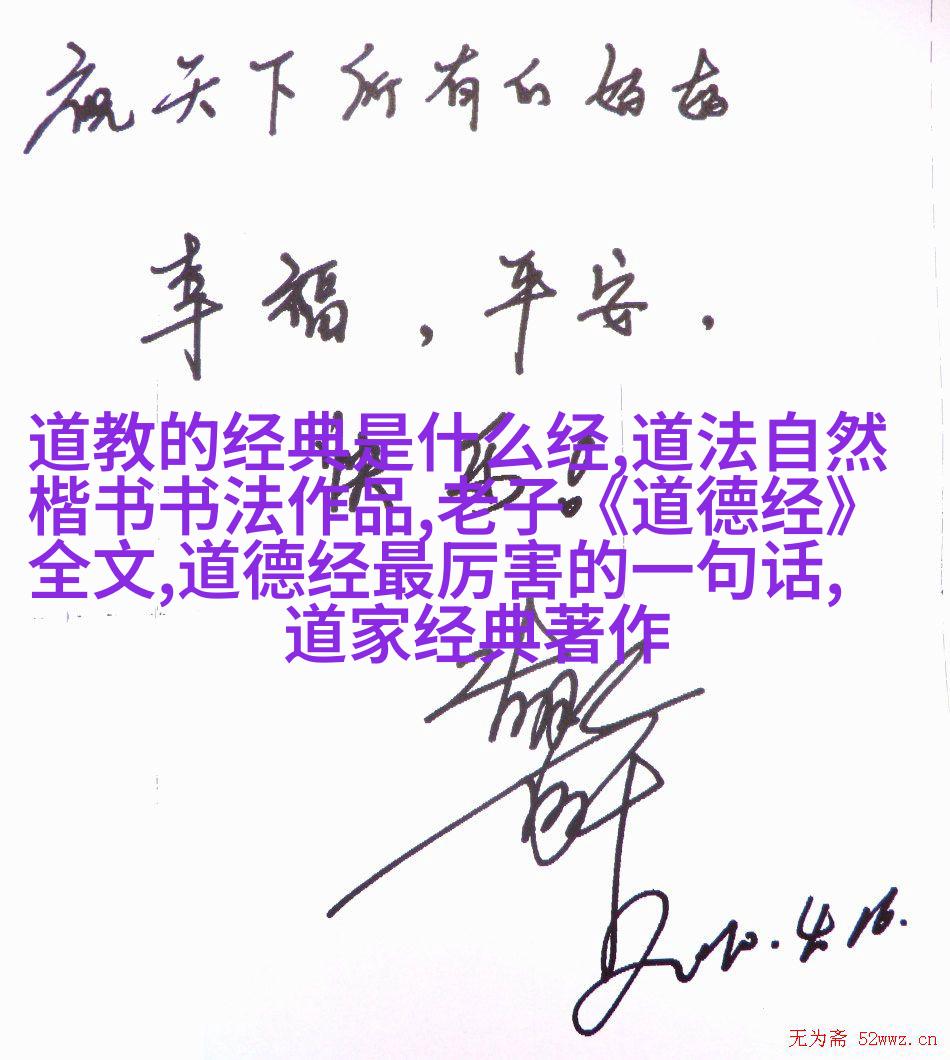 祝天下所有的妈妈
幸福，平安，
快乐！
道教的经典是什么经,道法自然
楷书书法作品,老子《道德经》
全文,道德经最厉害的一句话,
道家经典著作
2010.4.16.
无为斋 52wwz.cn